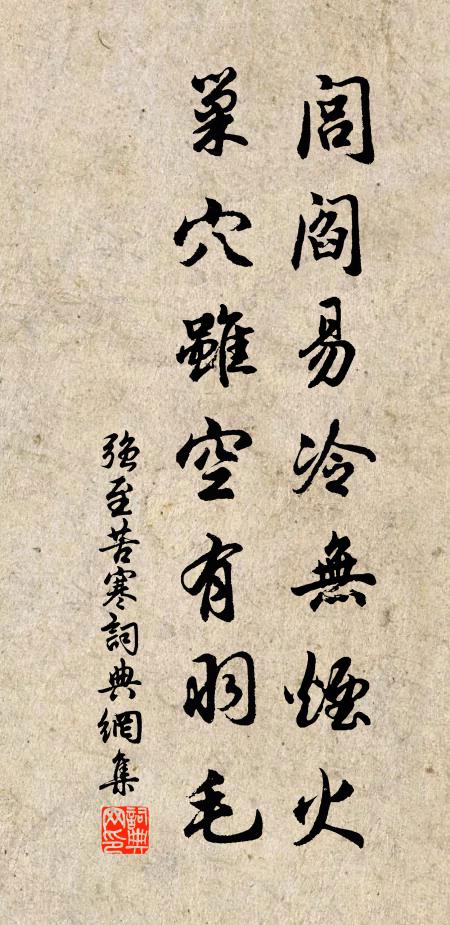 閭閻易冷無煙火
巢穴雖空有羽毛
強至苦寒詞典網集
詞典
网印